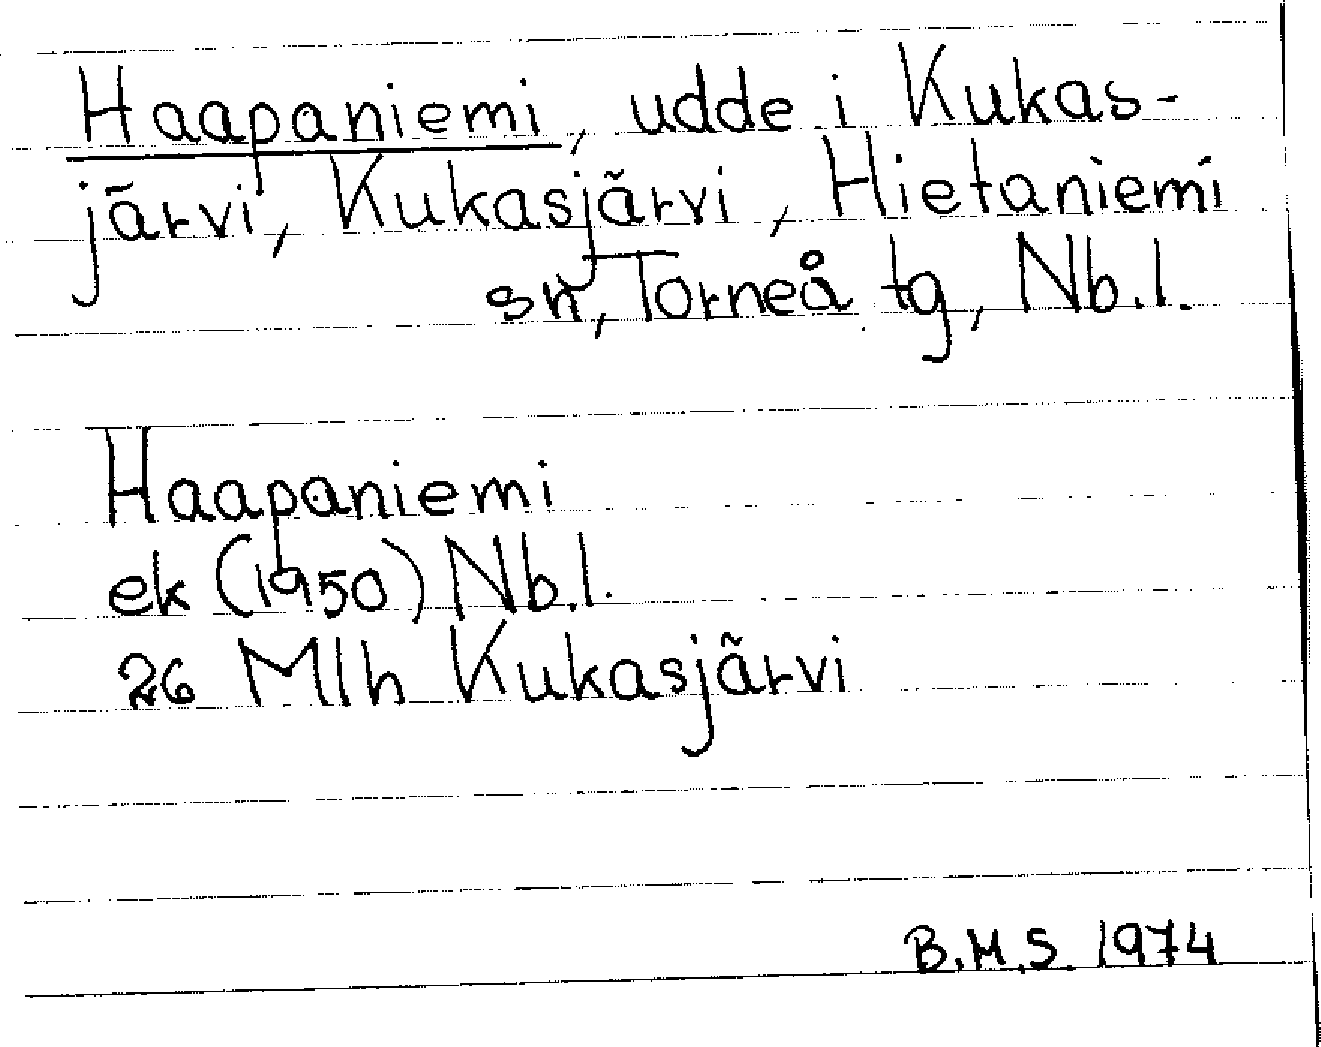 Haapaniemi, udde i Kukas-
järvi, Kukasjärvi, Hietaniemi
sn, Torneå tg, Nb.l.
Haapaniemi
ek (1950) Nb.l.
26 Mlh Kukasjärvi
B.M.S. 1974